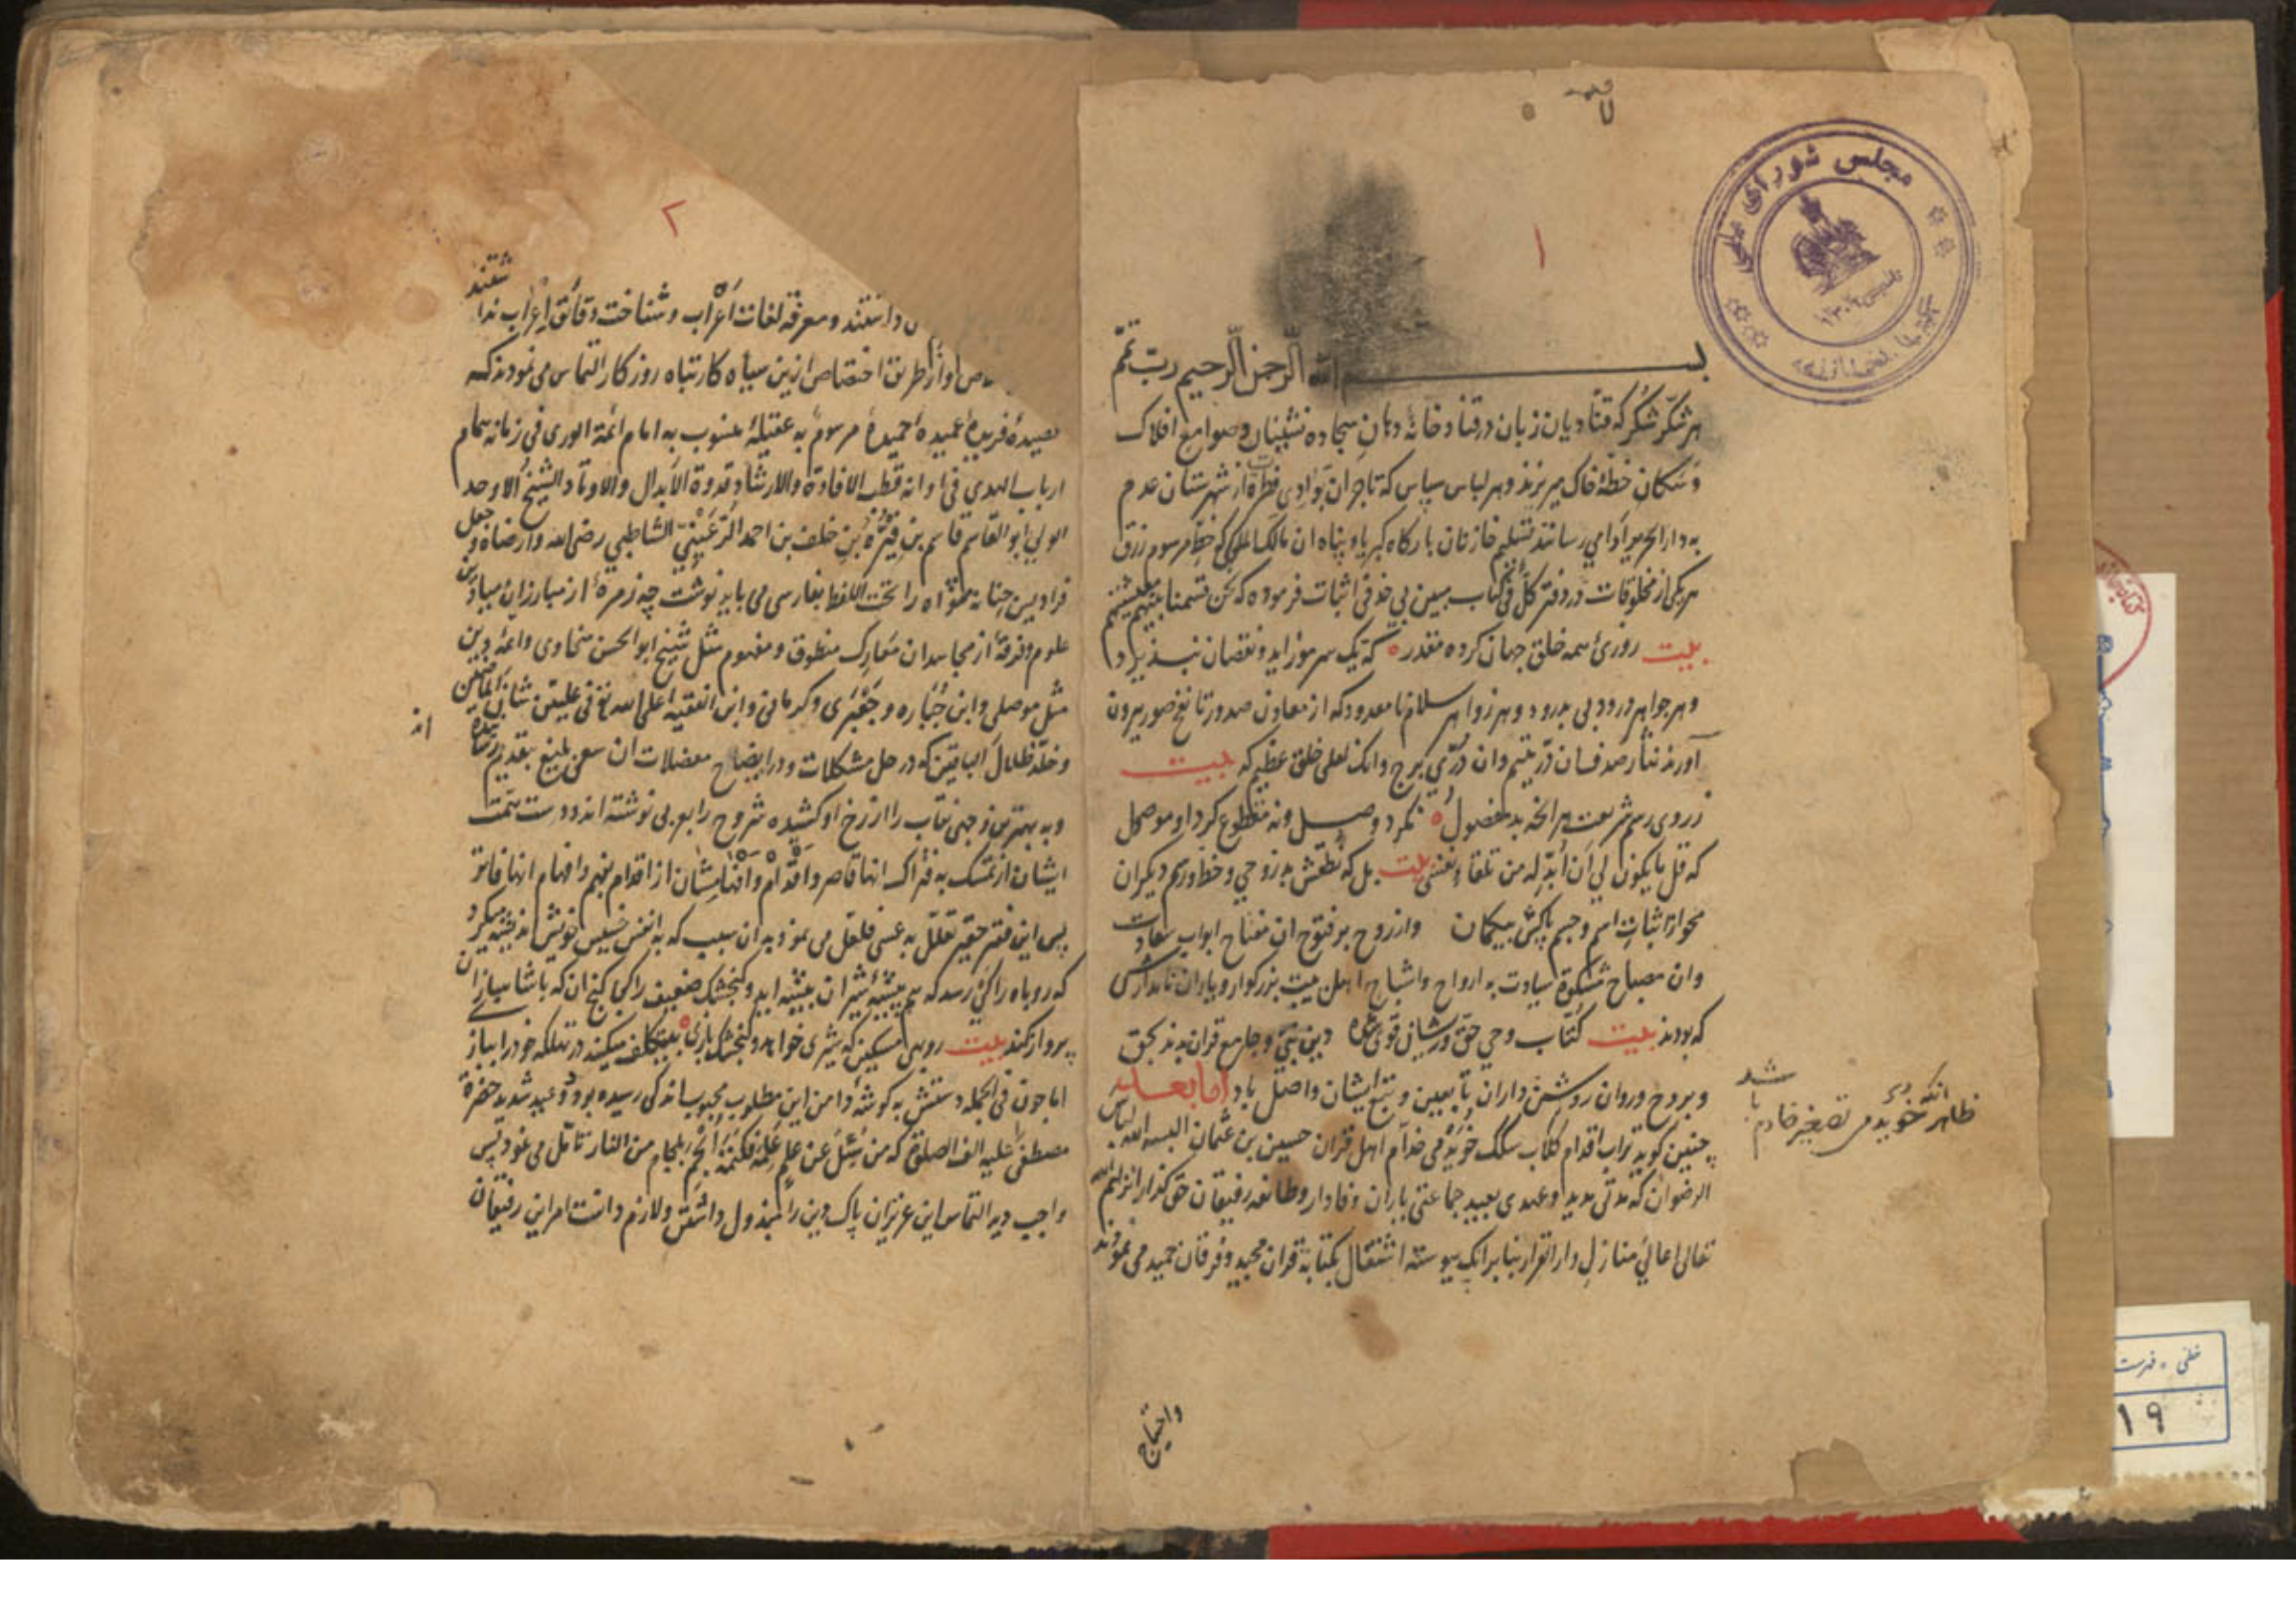 مجلس شورای ملی
۱
بسم الله الرحمن الرحیم رب تمم
هر شکّر شکر که قنّادیان زبان در قنادخانهٔ دهان سجاده نشینان صوامع افلاک
و سکان خطهٔ خاک میریزند و هر لباس سپاس که تاجران بوادی فطرة از شهرستان عدم
به دار الحرب وا می رسانند تسلیم خازنان بارگاه کبریا و پناه ان مالک الملکی که خط مرسوم رزق
هر یکی از مخلوقات در دفتر کل فی کتاب مبین بی خد فی اثبات فرموده که نحن قسمنا بینهم معیشتهم
بیت روزی همه خلق جهان کرده مقدر ه که یک سر مو زاید و نقصان نپذیرد
و هر جواهر درود بی بدرود و هر زواهر سلام نامعدود که از معادن صدور تا نفخ صور بیرون
آورند نثار صدف سان درّ یتیم وان درّی برج وانک لعلی خلق عظیم که بیت
ز روی رسم شریعت هر آنچه بد مفصول ه نکرد وصل و نه مقطوع کرد او موصول
که قل ما یکون لی ان ابدله من تلقاء نفسی بیت بل که نطقش بد ز وحی و خط و رسم دیگران
محو از اثبات اسم و جسم پاکش بیکمان وارزوح بر فتوح ان مفتاح ابواب سعادت
وان مصباح مشکوة سیادت به ارواح و اشباح اهل بیت بزرگوار و یاران نامدارش
که بودند بیت کتّاب وحی حق و رشان قوی شده دین نبی و جامع قران بدند بحق
و بروح و روان روشن داران تابعین و تبع ایشان واصل باد اما بعد
چنین گوید تراب اقدام کلاب سلک خویدمی خدام اهل قران حسین بن عثمان البسه الله لباس
الرضوان که مدتی مدید و عهدی بعید جماعتی یاران وفادار و طائفه رفیقان حق گذار انزلهم الله
تعالی اعالی منازل دار القرار بنابر انک پیوسته اشتغال بکتابة قران مجید و فرقان حمید می نمودند
ظاهر خویدم تصغیر خادم با شد
واحتیاج
۲
داشتند و معرفة لغات اعراب و شناخت دقائق اعراب ندا شتند
او از طریق اختصاص ازین سیاه کار تباه روزکار التماس می نمودند که
قصیدهٔ فریدهٔ عمیدهٔ حمیدهٔ مرسوم به عقیلهٔ منسوب به امام ائمة الوری فی زمانه همام
ارباب الهدی فی اوانه قطب الافادة والارشاد قدوة الابدال والاوتاد الشیخ الاوحد
الولی ابو القاسم قاسم بن فیّره بن خلف بن احمد الرعینی الشاطبی رضی الله وارضاه و جعل
فرادیس جنانه مثواه را تحت اللفظ بفارسی می باید نوشت چه زمرهٔ از مبارزان میادین
علوم و فرقهٔ از مجاهدان معارک منطوق و مفهوم مثل شیخ ابو الحسن سخاوی وائمهٔ دین
مثل موصلی وابن جباره و جعبری و کرمانی وابن الفقیه اعلی الله تع فی علیین شان الماضین
و خلد ظلال الباقین که در حل مشکلات و در ایضاح معضلات ان سعی بلیغ بتقدیم رسانیده اند
و به بهترین وجهی نقاب را از رخ او کشیده شروح رابع بی نوشته اند و دست همت
ایشان از تمسک به فتراک انها قاصر و اقدام و افهام ایشان از اقدام بفهم و افهام انها فاتر
پس این فقیر حقیر تعلل به عسی فلعل می نمود به ان سبب که به انفس خسیس خویش اندیشه میکرد
که روباه را کی رسد که هم بیشهٔ شیران بیشه اید و گنجشک ضعیف را کی گنج ان که با شاهبازان
پرواز کند بیت روبهی مسکین که شیری خواهد و گنجشک بازی ه بی تکلف میکند در تهلکه خود را بباز
اما چون فی الجمله دستش به گوشهٔ دامن این مطلوب محبوب اندکی رسیده بود و وعید شدید حضرة
مصطفی علیه الف الصلوة که من سئل عن علم علمه فکتمه الجم بلجام من النار تامل می نمود پس
واجب دید التماس این عزیزان پاک دین را مبذول داشتن و لازم دانست امر این رفیقان
خطی - فهرست
۱۹